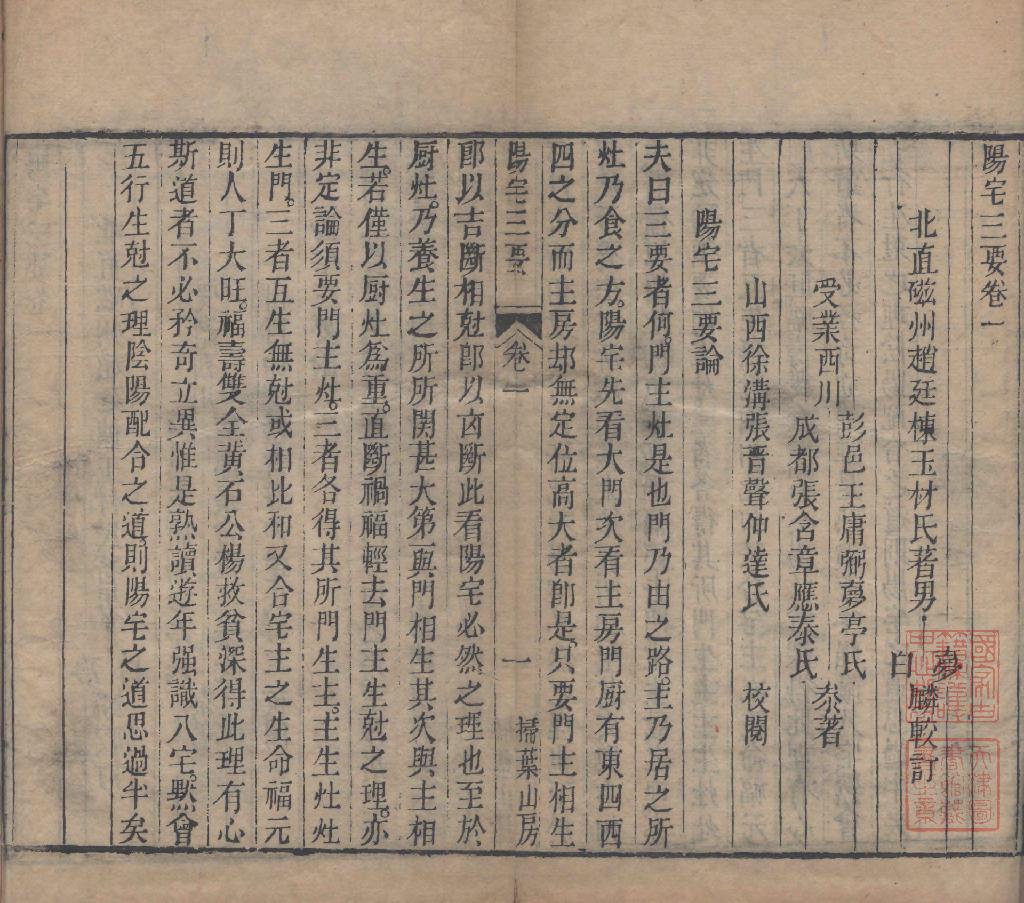 陽宅三要卷一
北直磁州趙廷棟玉材氏著男
夢
白
麟較訂
受業西川
彭邑王庸弼夢亭氏
成都張含章應泰氏
叅著
山西徐溝張晋聲仲達氏
校閱
陽宅三要論
夫曰三要者何。門主灶是也門乃由之路。主乃居之所
灶乃食之方。陽宅先看大門次看主房門厨有東四西
四之分而主房却無定位高大者卽是。只要門主相生
陽宅三要
卷一
一
掃葉山房
卽以吉斷相尅卽以㐫斷此看陽宅必然之理也至於
厨灶。乃養生之所所関甚大第一與門相生其次與主相
生。若僅以厨灶爲重。直斷禍福輕去門主生尅之理。亦
非定論須要門主灶。三者各得其所門生主。主生灶灶
生門。三者互生無尅或相比和又合宅主之生命福元
則人丁大旺。福壽雙全黃石公楊救貧深得此理有心
斯道者不必矜奇立異惟是熟讀遊年强識八宅。默會
五行生尅之理陰陽配合之道。則陽宅之道思過半矣